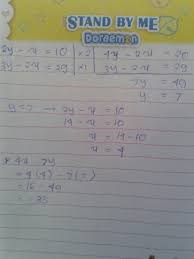 STAND BY ME
Doraemon
2y - x = 10 | ×2 | 4y - 2x = 20
3y - 2x = 29 | ×1 | 3y - 2x = 29
y = 7 → 2y - x = 10
14 - x = 10
x = 14 - 10
x = 4
* 4x 7y
= 4 (4) - 7 (7)
= 16 - 49
= - 33